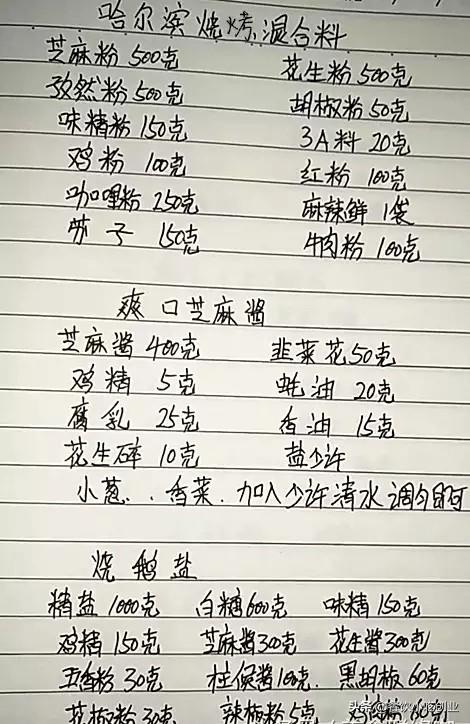 哈尔滨烧烤混合料
芝麻粉 500克 花生粉 500克
孜然粉 500克 胡椒粉 50克
味精粉 150克 3A料 20克
鸡粉 100克 红粉 100克
咖哩粉 250克 麻辣鲜 1袋
苏子 150克 牛肉粉 100克
爽口芝麻酱
芝麻酱 400克 韭菜花 50克
鸡精 5克 蚝油 20克
腐乳 25克 香油 15克
花生碎 10克 盐少许
小葱、香菜、加入少许清水调匀即可
烧鹅盐
精盐 1000克 白糖 600克 味精 150克
鸡精 150克 芝麻酱 300克 花生酱 300克
五香粉 30克 柱侯酱 100克 黑胡椒 60克
花椒粉 30克 辣椒粉 5克